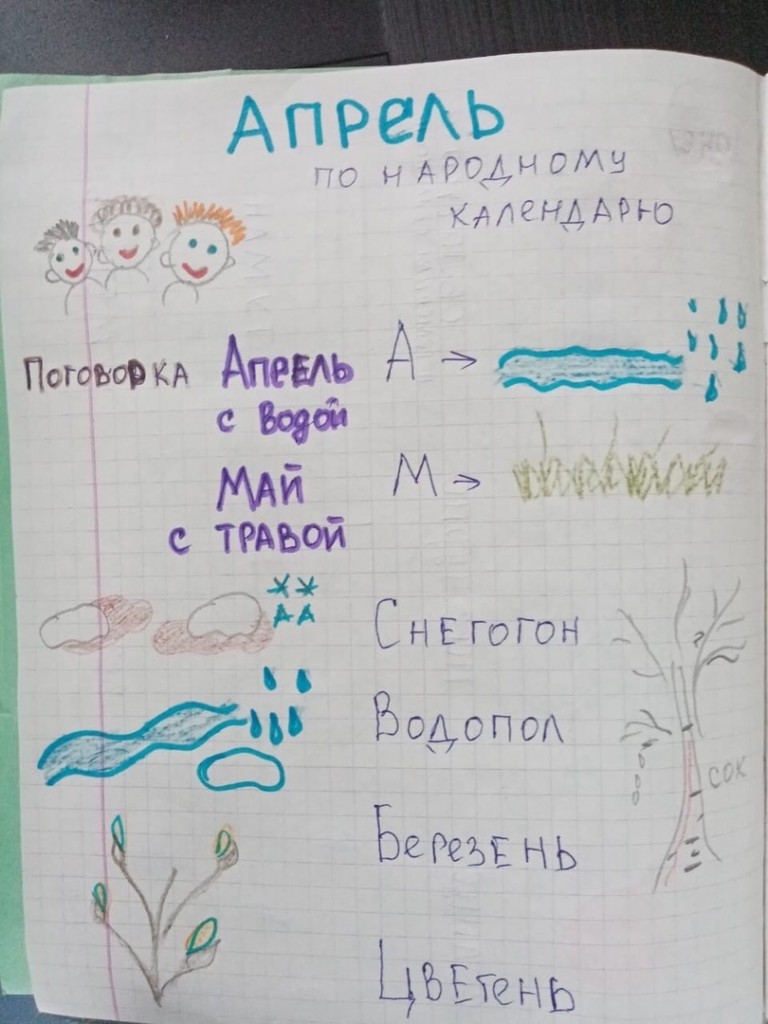 Апрель
по народному
календарю
Поговорка Апрель А →
с водой
Май М →
с травой
Снегогон
Водопол
сок
Березень
Цветень